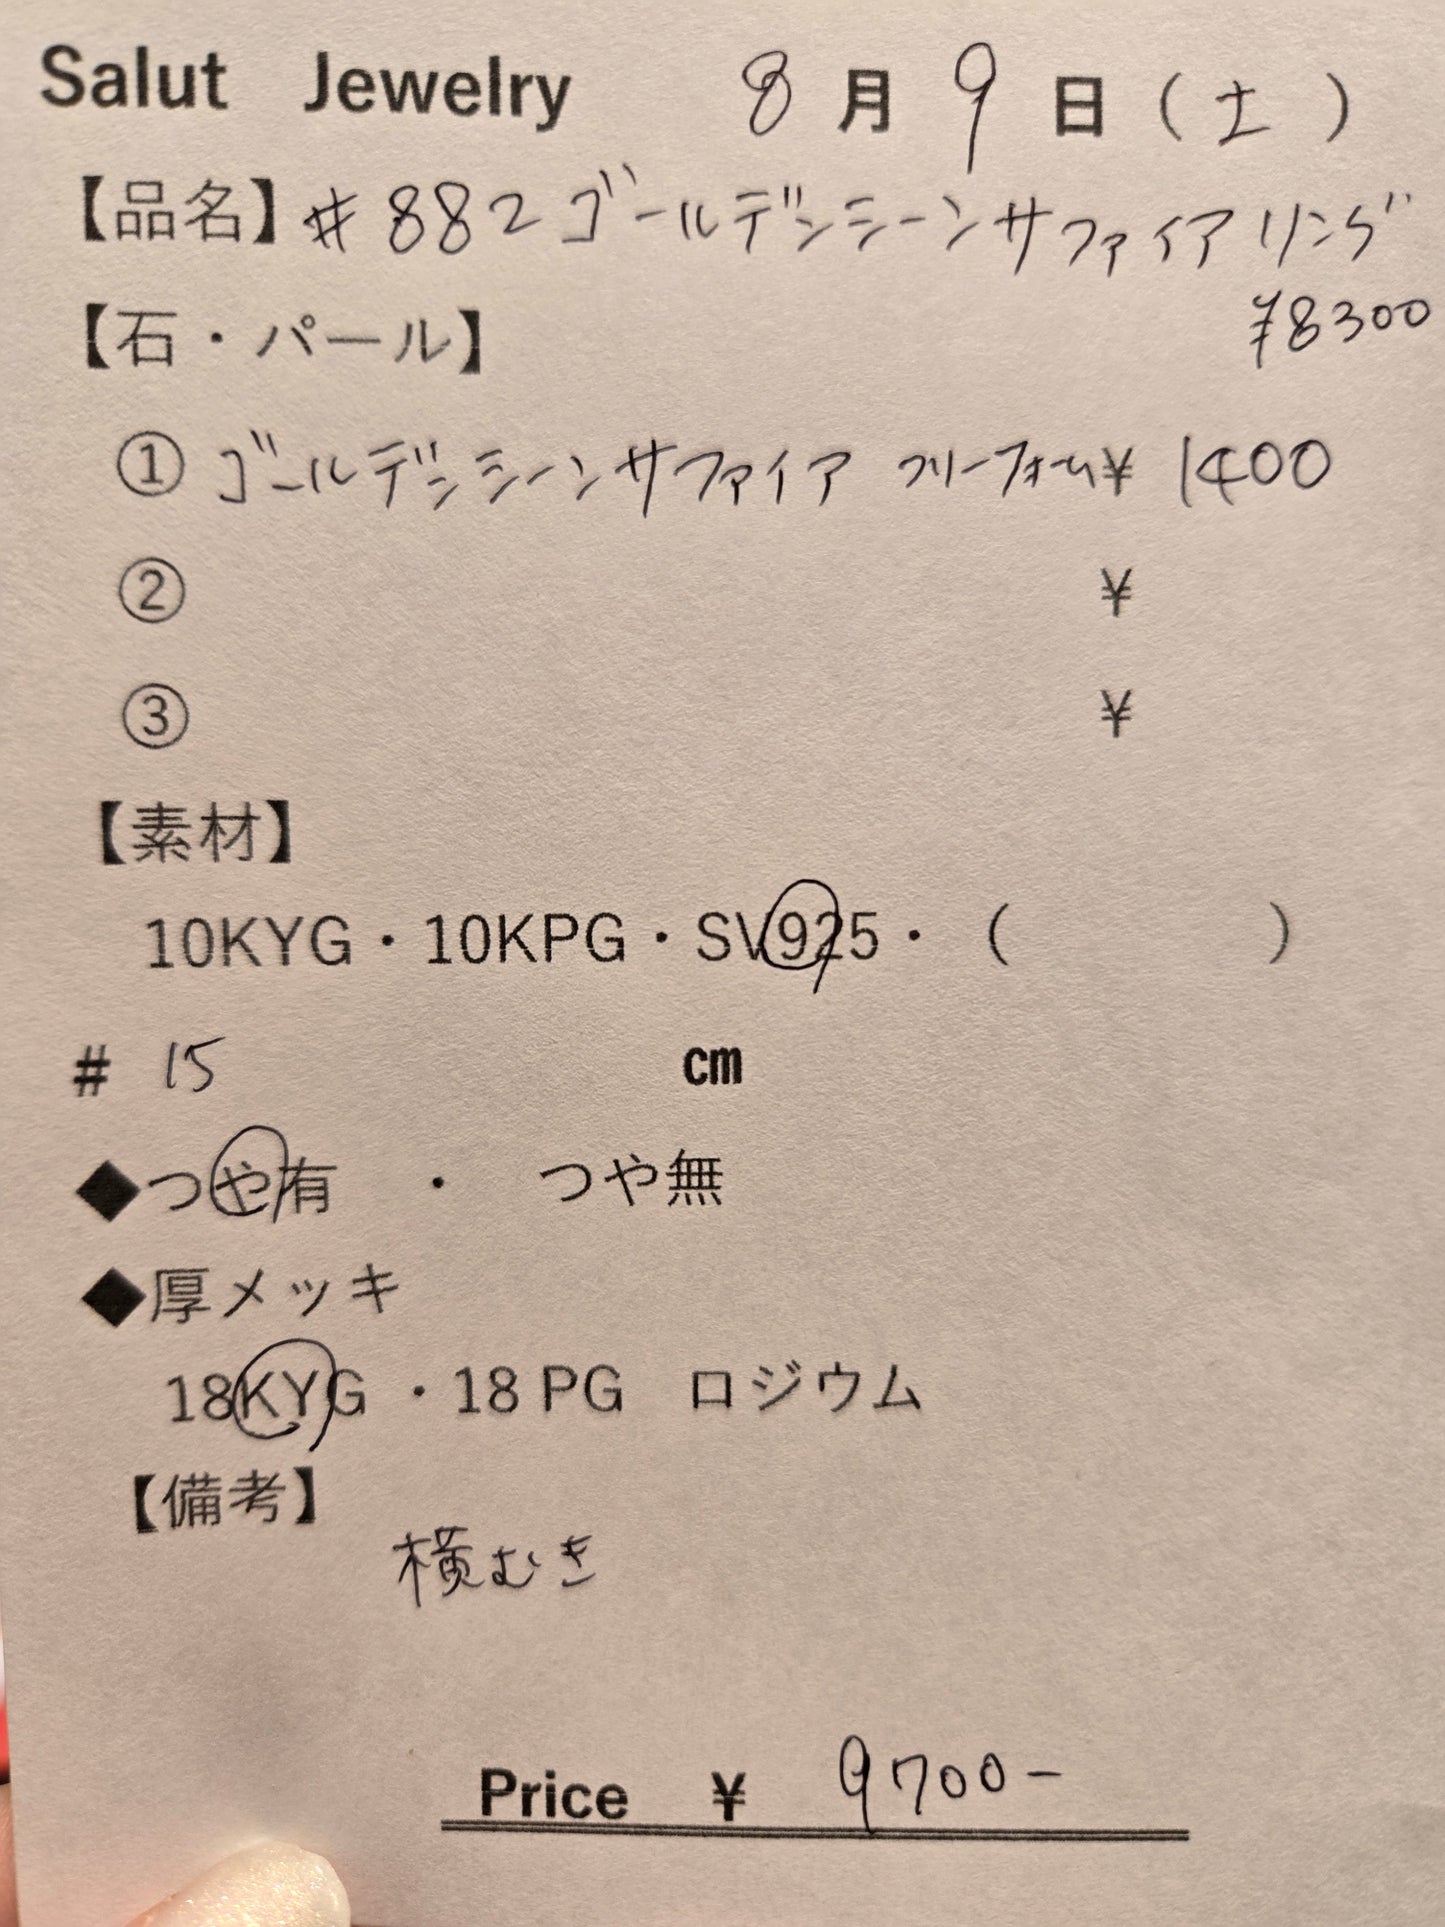 Salut Jewelry 8月9日(土)
【品名】#882ゴールデンシーンサファイアリング
¥8300
【石・パール】
①ゴールデンシーンサファイア フリーフォーム¥1400
② ¥
③ ¥
【素材】
10KYG・10KPG・SV925・( )
# 15 cm
◆つや有 ・ つや無
◆厚メッキ
18KYG ・18 PG ロジウム
【備考】
横むき
Price ¥ 9700-